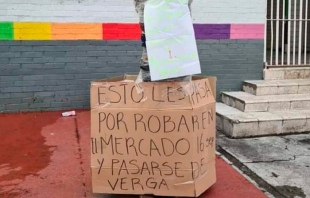 ESTO LES PASA
POR ROBAR EN
MERCADO 16
Y PASARSE DE
VERGA